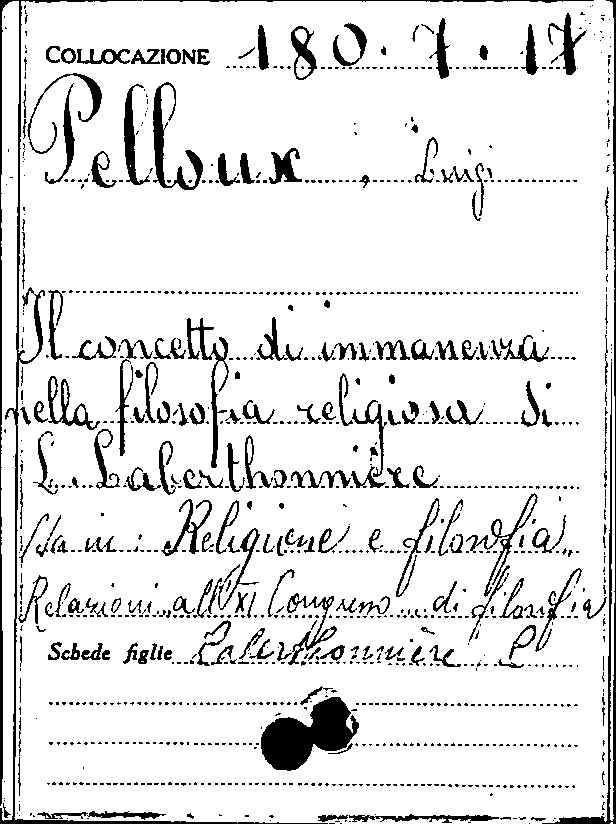 COLLOCAZIONE 180.7.17
Pelloux, Luigi
Il concetto di immanenza
nella filosofia religiosa di
L. Laberthonnière
Sta in: Religione e filosofia.
Relazioni all'XI Congresso .. di filosofia
Schede figlie Laberthonnière, L